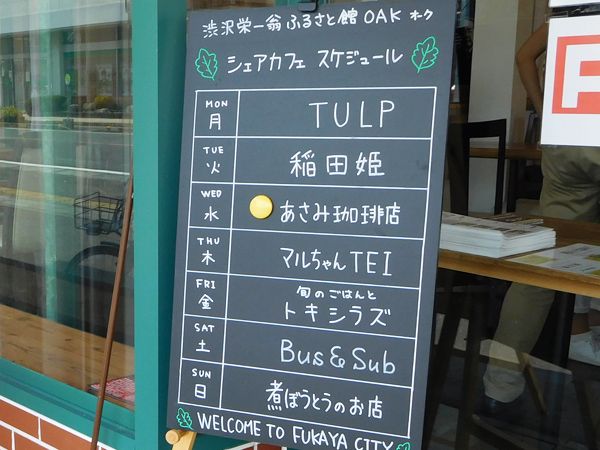 渋沢栄一翁ふるさと館OAK オーク
シェアカフェ スケジュール
MON
月
TULP
TUE
火
稲田姫
WED
水
あさみ珈琲店
THU
木
マルちゃんTEI
FRI
金
旬のごはんと
トキシラズ
SAT
土
Bus&Sub
SUN
日
煮ぼうとうのお店
WELCOME TO FUKAYA CITY